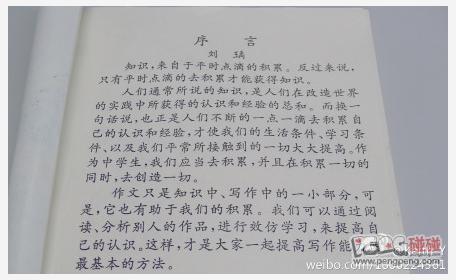 序 言
刘 瑀
知识，来自于平时点滴的积累。反过来说，
只有平时点滴的去积累才能获得知识。
人们通常所说的知识，是人们在改造世界
的实践中所获得的认识和经验的总和。而换一
句话说，也正是人们不断的一点一滴去积累自
己的认识和经验，才使我们的生活条件、学习条
件、以及我们平常所接触到的一切大大提高。作
为中学生，我们应当去积累，并且在积累一切的
同时，去创造一切。
作文只是知识中、写作中的一小部分，可
是，它也有助于我们的积累。我们可以通过阅
读、分析别人的作品，进行效仿学习，来提高自
己的认识。这样，才是大家一起提高写作能
最基本的方法。
碰碰
www.pengpeng.com